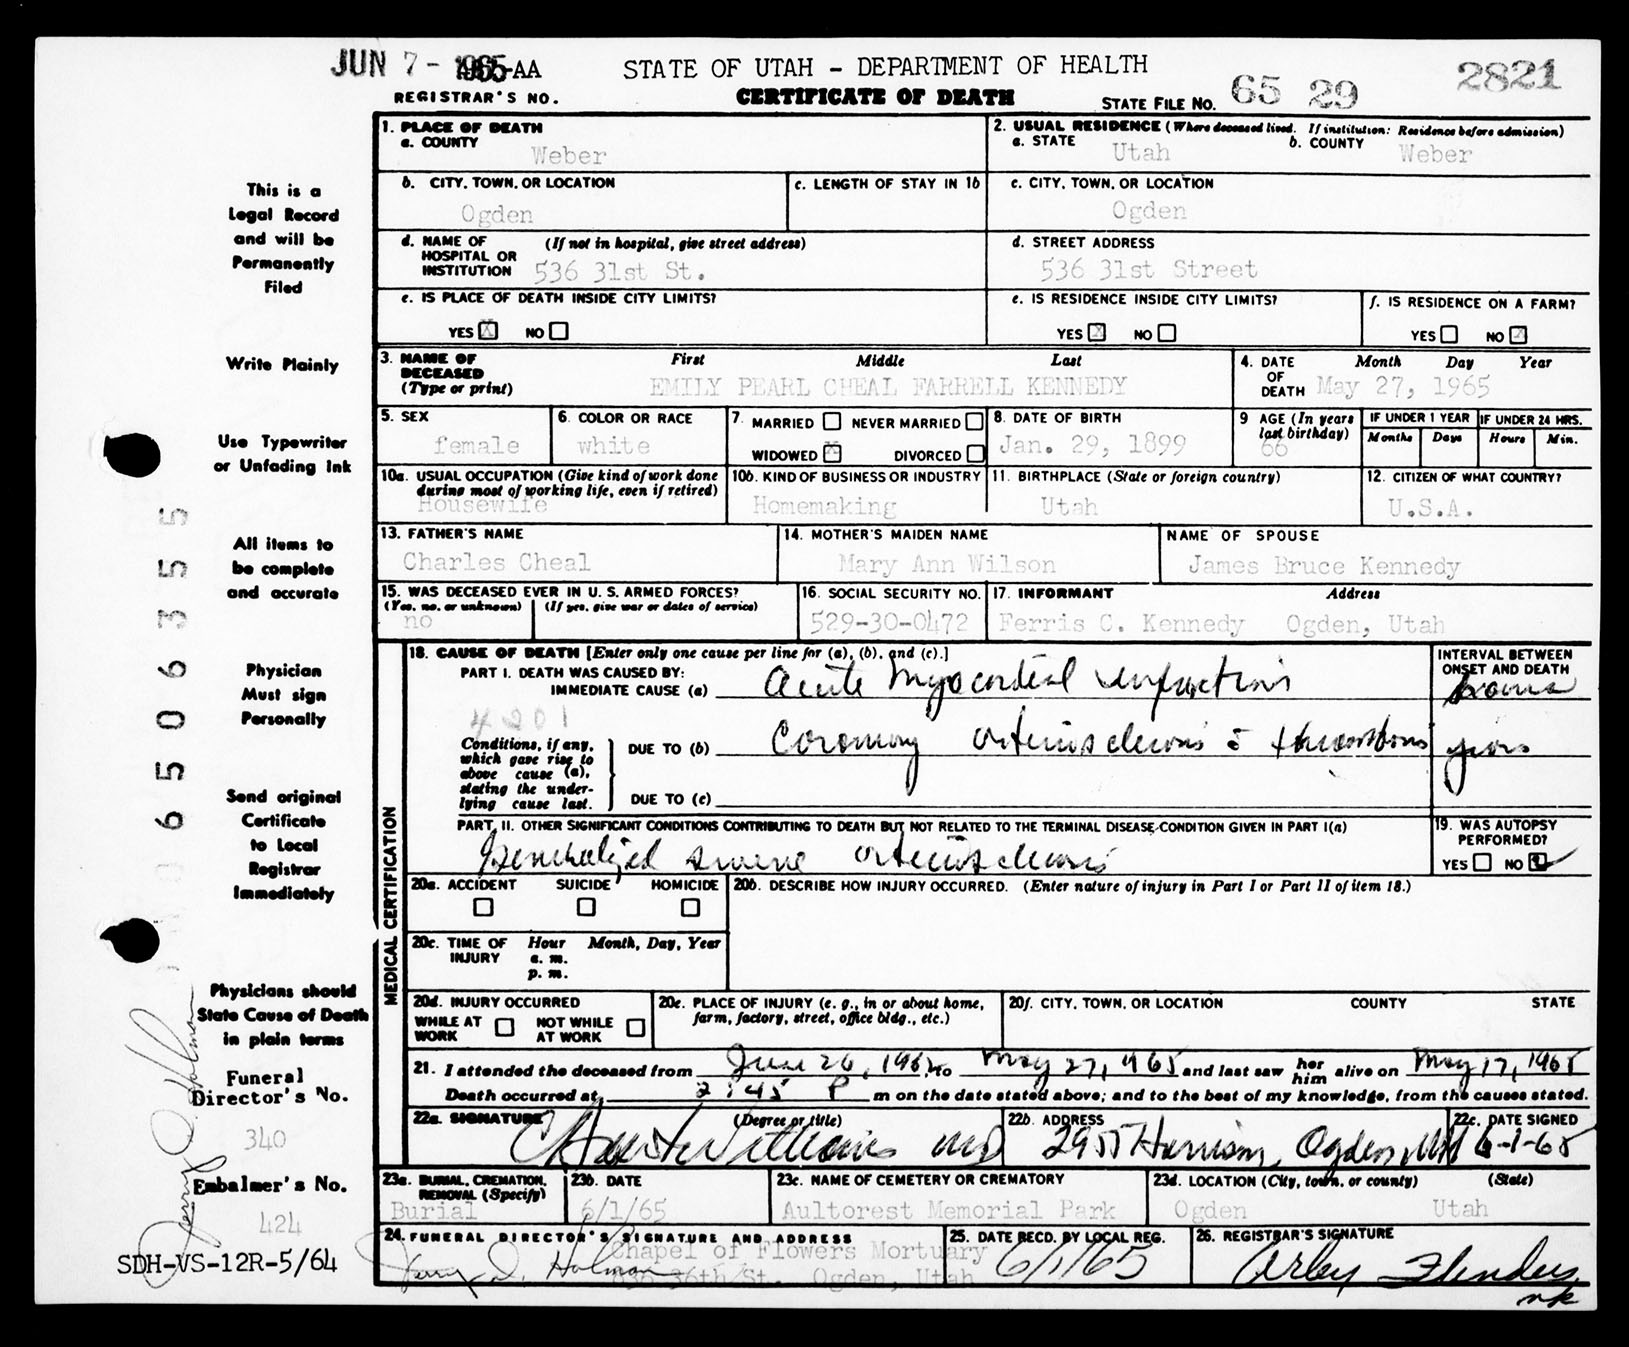 JUN 7 - 1965 AA
STATE OF UTAH - DEPARTMENT OF HEALTH
REGISTRAR'S NO.
CERTIFICATE OF DEATH
STATE FILE NO. 65 29 2821
1. PLACE OF DEATH
a. COUNTY
Weber
2. USUAL RESIDENCE (Where deceased lived. If institution: Residence before admission)
a. STATE Utah
b. COUNTY Weber
b. CITY, TOWN, OR LOCATION
Ogden
c. LENGTH OF STAY IN 1b
c. CITY, TOWN, OR LOCATION
Ogden
d. NAME OF HOSPITAL OR INSTITUTION (If not in hospital, give street address)
536 31st St.
d. STREET ADDRESS
536 31st Street
e. IS PLACE OF DEATH INSIDE CITY LIMITS?
YES X NO
e. IS RESIDENCE INSIDE CITY LIMITS?
YES X NO
f. IS RESIDENCE ON A FARM?
YES NO X
3. NAME OF DECEASED (Type or print)
First Middle Last
EMILY PEARL CHEAL FARRELL KENNEDY
4. DATE OF DEATH
Month Day Year
May 27, 1965
5. SEX
female
6. COLOR OR RACE
white
7. MARRIED NEVER MARRIED
WIDOWED X DIVORCED
8. DATE OF BIRTH
Jan. 29, 1899
9 AGE (In years last birthday)
66
IF UNDER 1 YEAR
Months Days
IF UNDER 24 HRS.
Hours Min.
10a. USUAL OCCUPATION (Give kind of work done during most of working life, even if retired)
Housewife
10b. KIND OF BUSINESS OR INDUSTRY
Homemaking
11. BIRTHPLACE (State or foreign country)
Utah
12. CITIZEN OF WHAT COUNTRY?
U.S.A.
13. FATHER'S NAME
Charles Cheal
14. MOTHER'S MAIDEN NAME
Mary Ann Wilson
NAME OF SPOUSE
James Bruce Kennedy
15. WAS DECEASED EVER IN U. S. ARMED FORCES?
(Yes, no, or unknown) (If yes, give war or dates of service)
no
16. SOCIAL SECURITY NO.
529-30-0472
17. INFORMANT Address
Ferris C. Kennedy Ogden, Utah
18. CAUSE OF DEATH [Enter only one cause per line for (a), (b), and (c).]
PART I. DEATH WAS CAUSED BY:
IMMEDIATE CAUSE (a) Acute Myocardial infarction
INTERVAL BETWEEN ONSET AND DEATH
hours
4201
Conditions, if any, which gave rise to above cause (a), stating the underlying cause last.
DUE TO (b) Coronary arteriosclerosis c̄ thrombosis
years
DUE TO (c)
PART II. OTHER SIGNIFICANT CONDITIONS CONTRIBUTING TO DEATH BUT NOT RELATED TO THE TERMINAL DISEASE CONDITION GIVEN IN PART I(a)
Generalized severe arteriosclerosis
19. WAS AUTOPSY PERFORMED?
YES NO
MEDICAL CERTIFICATION
20a. ACCIDENT SUICIDE HOMICIDE
20b. DESCRIBE HOW INJURY OCCURRED. (Enter nature of injury in Part I or Part II of item 18.)
20c. TIME OF INJURY Hour Month, Day, Year
a. m.
p. m.
20d. INJURY OCCURRED
WHILE AT WORK NOT WHILE AT WORK
20e. PLACE OF INJURY (e. g., in or about home, farm, factory, street, office bldg., etc.)
20f. CITY, TOWN, OR LOCATION COUNTY STATE
21. I attended the deceased from June 26, 1962 to May 27, 1965 and last saw her him alive on May 17, 1965
Death occurred at 2:45 P m on the date stated above; and to the best of my knowledge, from the causes stated.
22a. SIGNATURE (Degree or title)
Williams MD
22b. ADDRESS
2955 Harrison, Ogden, Utah
22c. DATE SIGNED
6-1-65
23a. BURIAL, CREMATION, REMOVAL (Specify)
Burial
23b. DATE
6/1/65
23c. NAME OF CEMETERY OR CREMATORY
Aultorest Memorial Park
23d. LOCATION (City, town, or county) (State)
Ogden Utah
24. FUNERAL DIRECTOR'S SIGNATURE AND ADDRESS
Chapel of Flowers Mortuary
Jerry D. Holman
36th St. Ogden, Utah
25. DATE RECD. BY LOCAL REG.
6/1/65
26. REGISTRAR'S SIGNATURE
Arley Flinders
nk
This is a
Legal Record
and will be
Permanently
Filed
Write Plainly
Use Typewriter
or Unfading Ink
All items to
be complete
and accurate
Physician
Must sign
Personally
Send original
Certificate
to Local
Registrar
Immediately
Physicians should
State Cause of Death
in plain terms
Funeral
Director's No.
340
Embalmer's No.
424
Jerry D. Holman
SDH-VS-12R-5/64
6506 3355